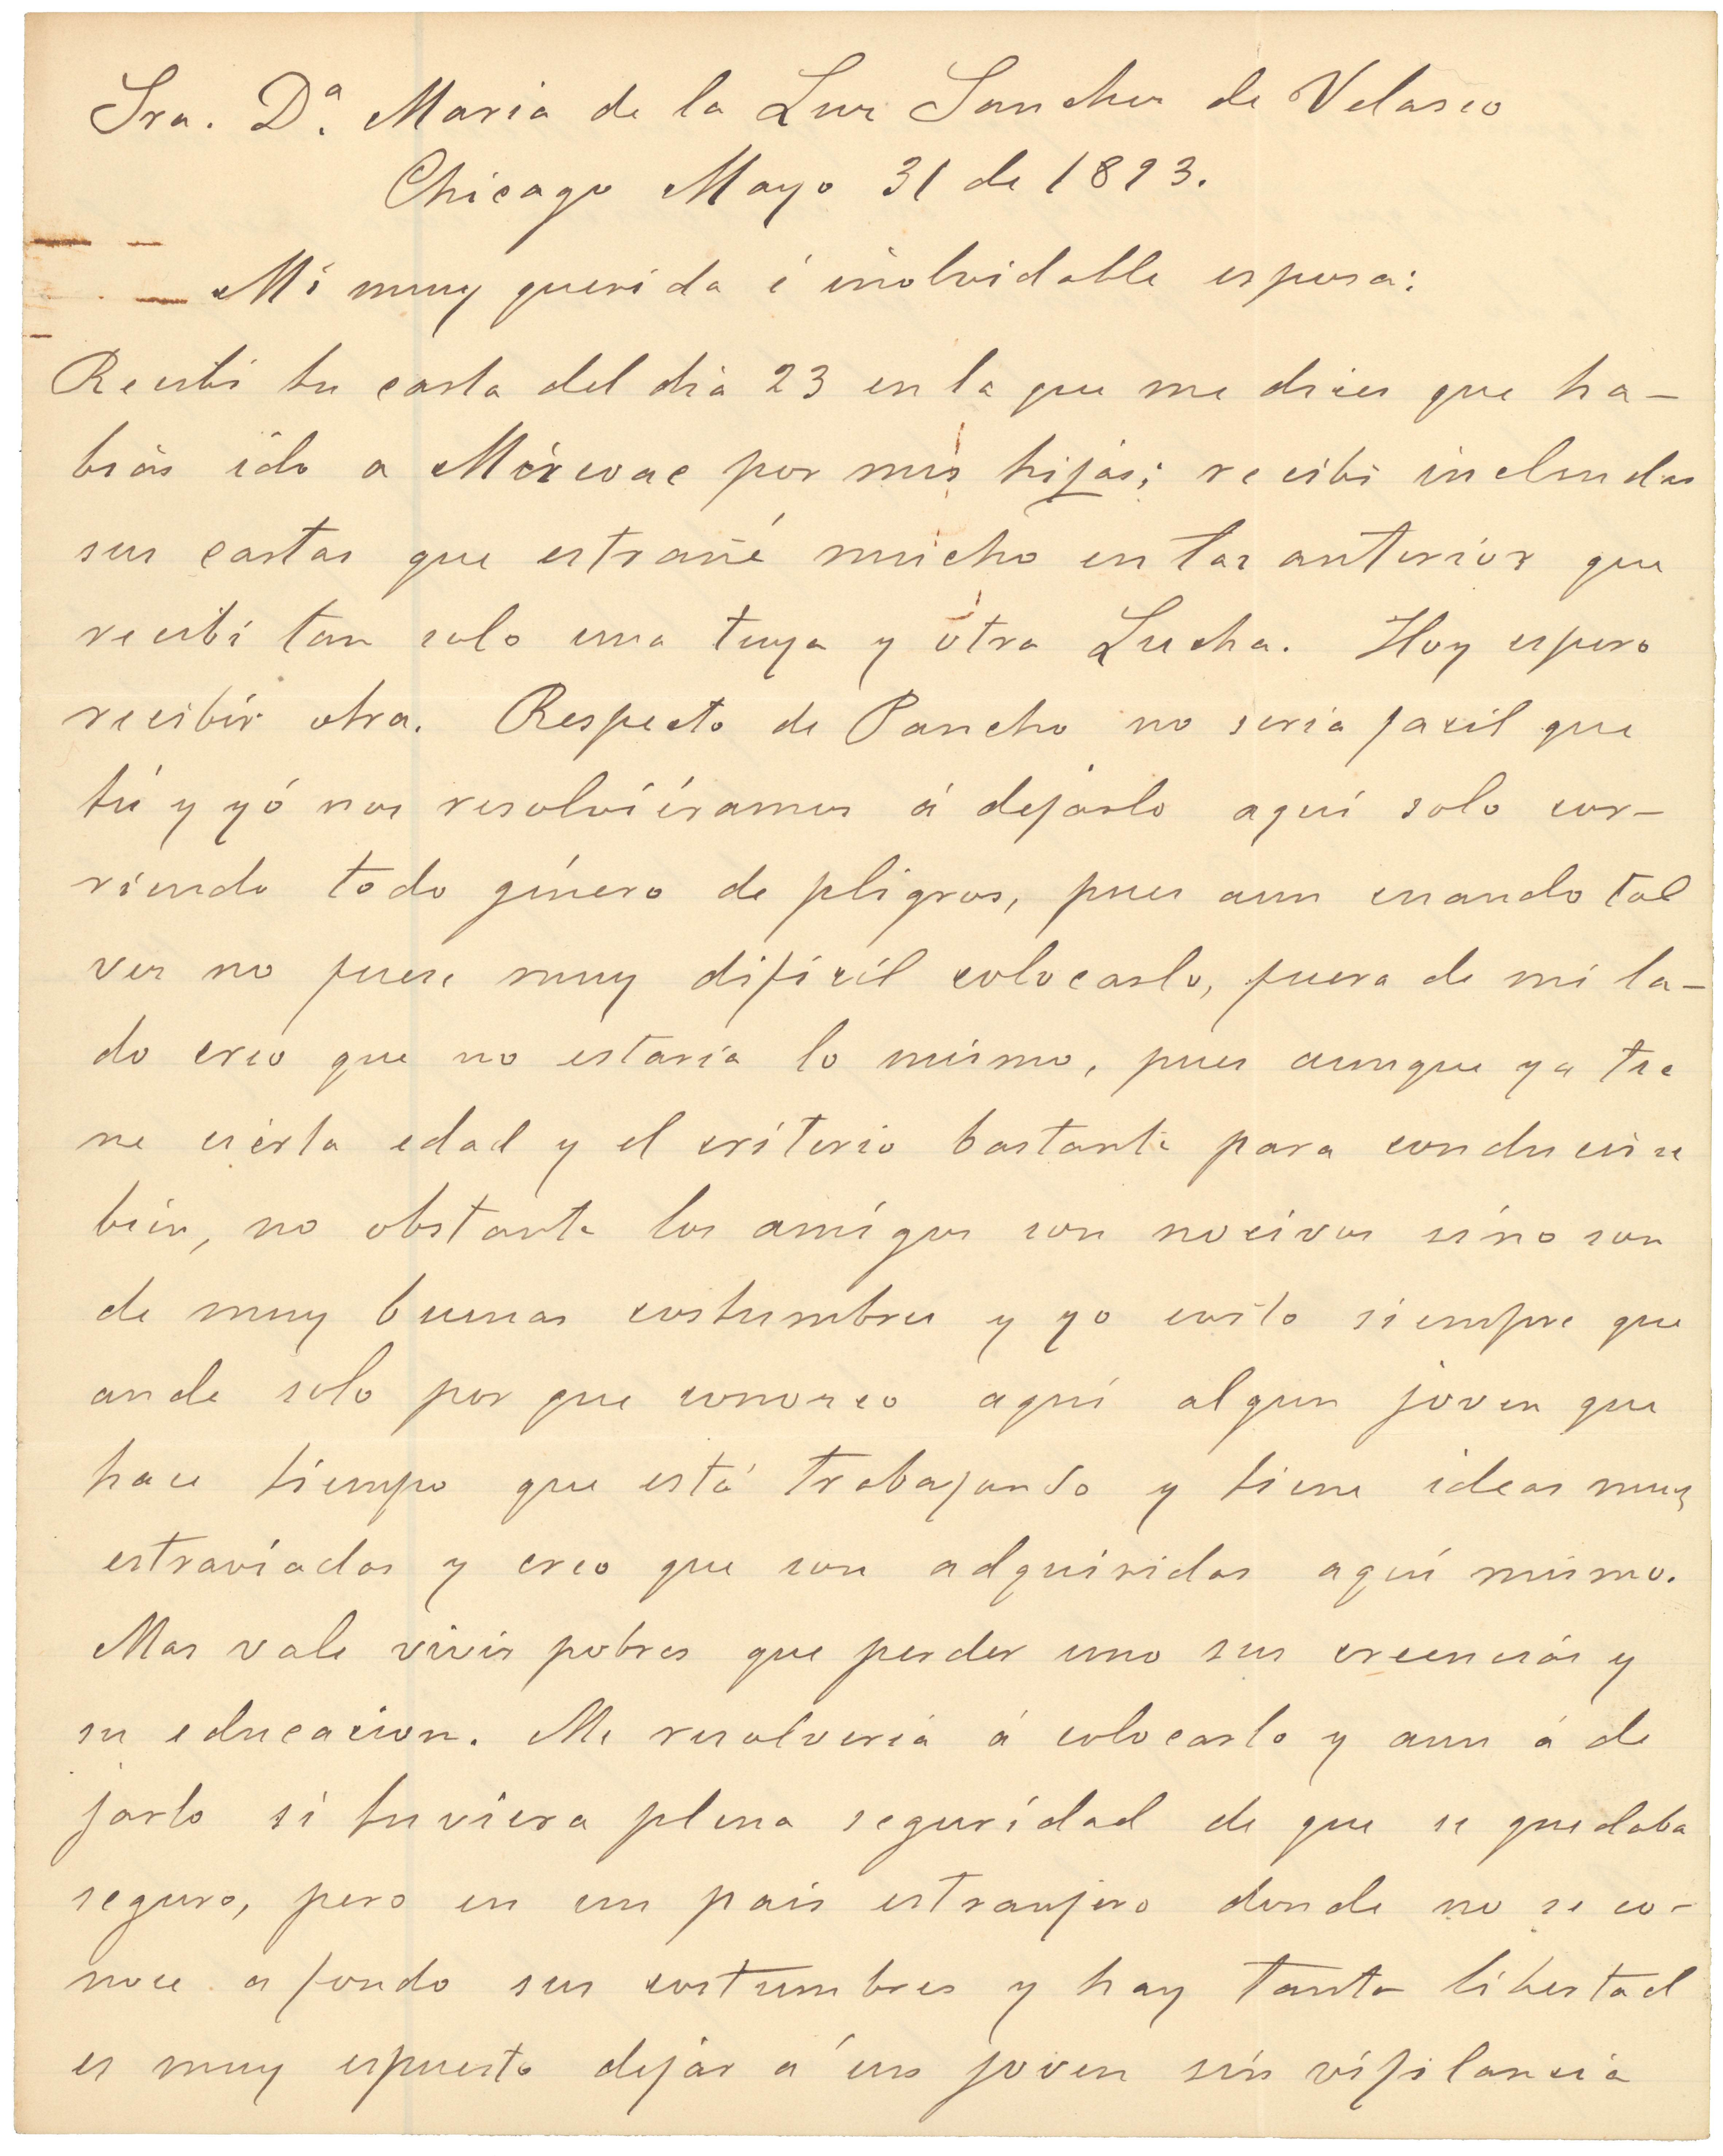 Sra. Dª. Maria de la Luz Sanchez de Velasco
Chicago Mayo 31 de 1893.
Mi muy querida é inolvidable esposa:
Recibi tu carta del dia 23 en la que me dices que ha-
bias ido a Mixcoac por mis hijas; recibi inclusas
sus cartas que estrañé mucho en las anterior que
recibi tan solo una tuya y otra Lucha. Hoy espero
recibir otra. Respecto de Pancho no seria facil que
tú y yó nos resolviéramos á dejarlo aquí solo cor-
riendo todo género de pligros, pues aun cuando tal
vez no fuese muy dificil colocarlo, fuera de mi la-
do creo que no estaria lo mismo, pues aunque ya tie
ne cierta edad y el criterio bastante para conducirse
bien, no obstante los amigos son nocivos sino son
de muy buenas costumbres y yo evito siempre que
ande solo por que conozco aquí algun joven que
hace tiempo que está trabajando y tiene ideas muy
estraviadas y creo que son adquiridas aquí mismo.
Mas vale vivir pobres que perder uno sus creencias y
su educacion. Me resolveria á colocarlo y aun á de
jarlo si tuviera plena seguridad de que se quedaba
seguro, pero en un pais estranjero donde no se co-
noce a fondo sus costumbres y hay tanta libertad
es muy espuesto dejar á un joven sin vijilancia